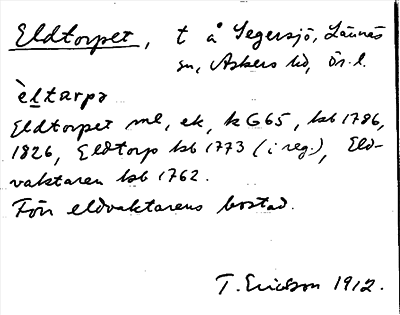 Eldtorpet, t å Segersjö, Lännäs
sn, Askers hd, Ör. l.
èltarpə
Eldtorpet ml, ek, k G65, hsb 1786,
1826, Eldtorp hsb 1773 (i reg.), Eld-
vaktaren hsb 1762.
Förr eldvaktarens bostad.
T. Ericson 1912.